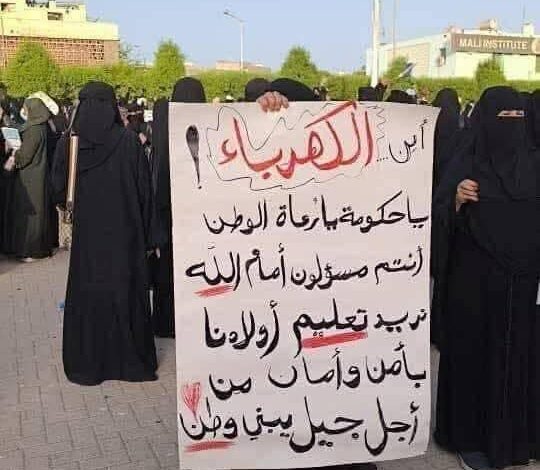 MALI INSTITUTE
أين ... الكهرباء !
ياحكومة يارعاة الوطن
أنتم مسؤولون أمام الله
نريد تعليم أولادنا
بأمن وأمان من
أجل جيل يبني وطن